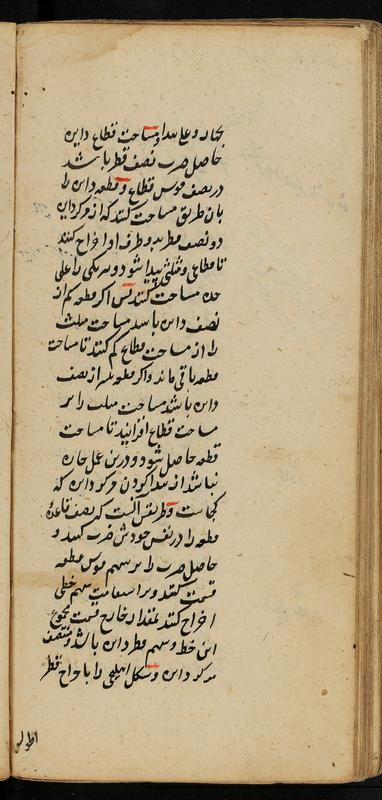 بکاہد و علی ہذا و مساحت قطاع دایره
حاصل ضرب نصف قطر باشد
در نصف قوس قطاع و قطعه دایره را
بان طریق مساحت کنند که از مرکز دایره
دو نصف قطر بدو طرف او اخراج کنند
تا قطاعی و مثلثی پیدا شود و هر یکی را علی
حده مساحت کنند پس اگر قطعه کم از
نصف دایره باشد مساحت مثلث
را از مساحت قطاع کم کنند تا مساحت
قطعه باقی ماند و اگر قطعه بیش از نصف
دایره باشد مساحت مثلث را بر
مساحت قطاع افزایند تا مساحت
قطعه حاصل شود و درین عمل چاره
نباشد از پیدا کردن مرکز دایره که
کجاست و طریقش آنست که نصف قاعدۀ
قطعه را در نفس خودش ضرب کنند و
حاصل ضرب را بر سهم قوس قطعه
قسمت کنند و بر استقامت سهم خطی
اخراج کنند بمقدار خارج قسمت مجموع
این خط و سهم قطر دایره باشد و منتصف
مرکز دایره و شکل اهلیلجی را باخراج قطر
اطول